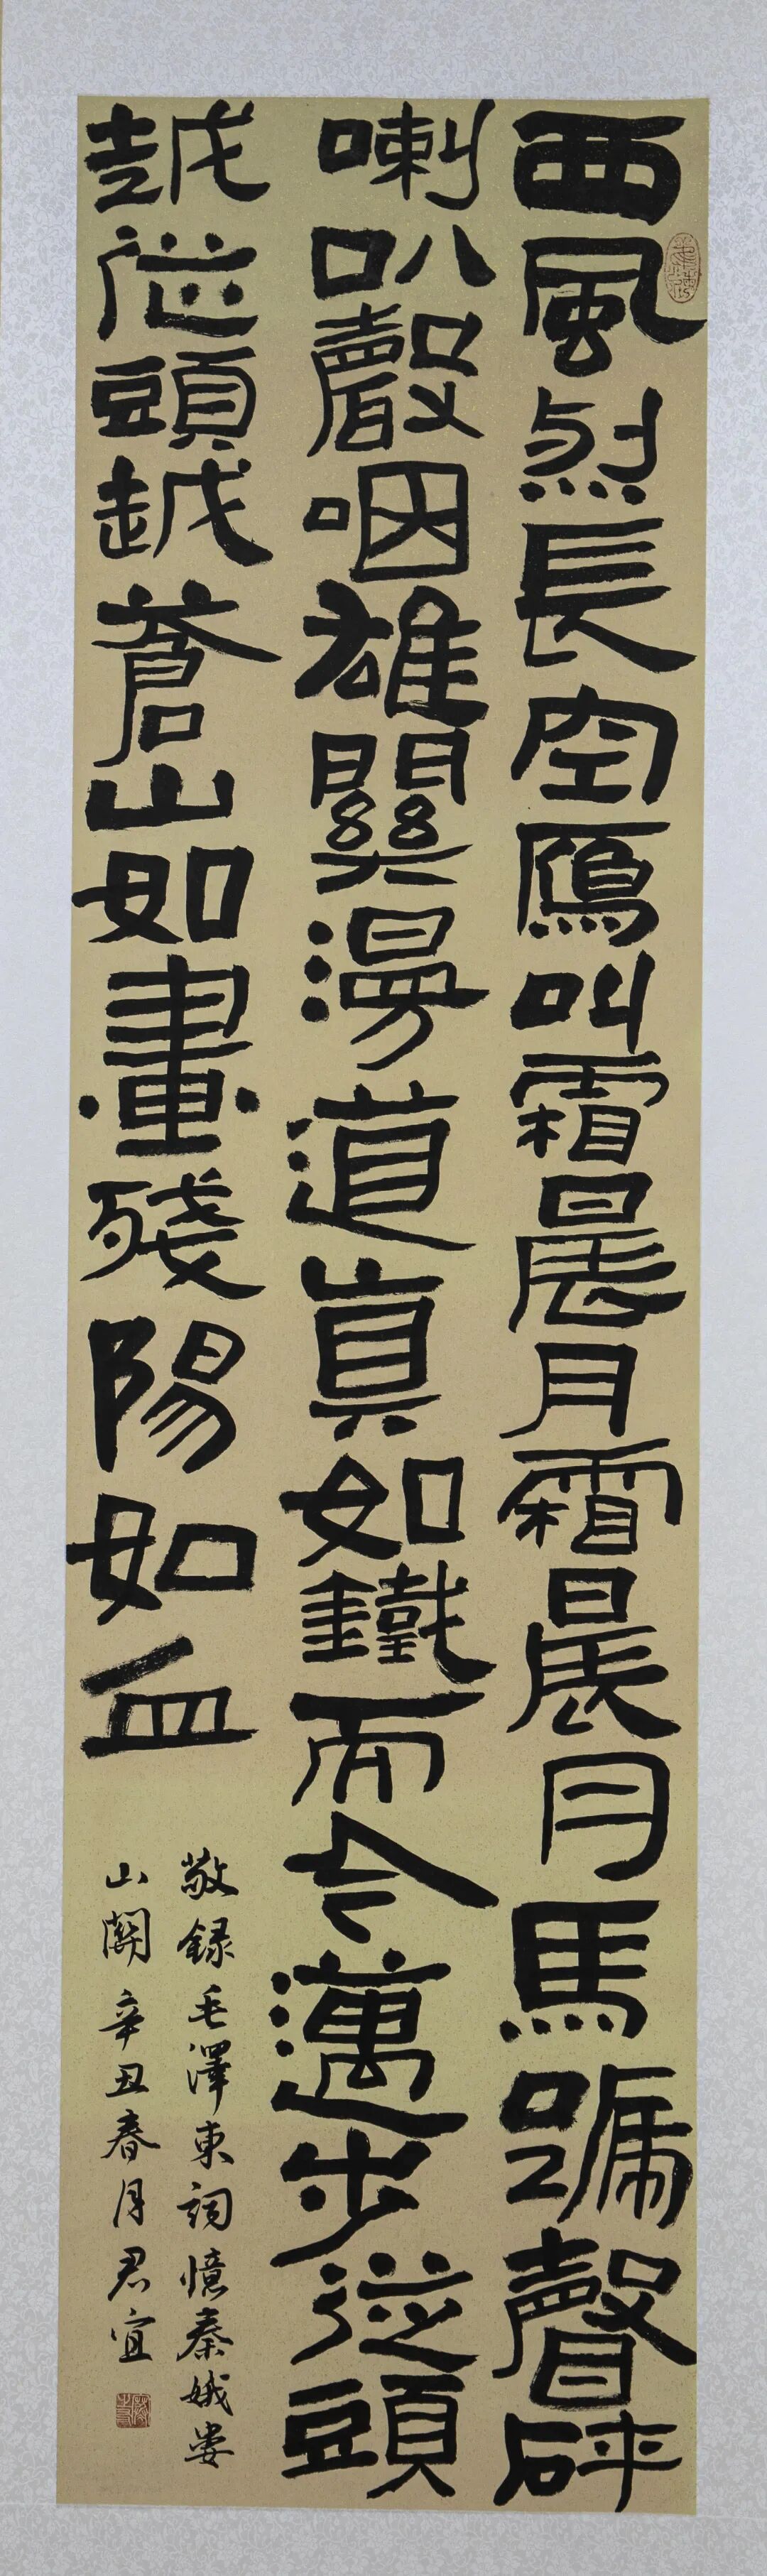 西風烈長空鴈叫霜晨月霜晨月馬蹏聲碎
喇叭聲咽雄關漫道真如鐵而今邁步從頭
越從頭越蒼山如畫殘陽如血
敬録毛澤東詞憶秦娥婁
山關辛丑春月君宜